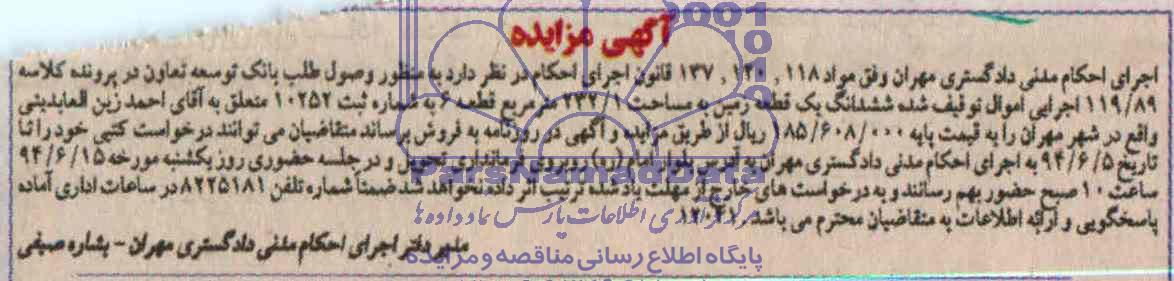 آگهی مزایده
اجرای احکام مدنی دادگستری مهران وفق مواد ۱۱۸ , ۱۲۰ , ۱۳۷ قانون اجرای احکام در نظر دارد به منظور وصول طلب بانک توسعه تعاون در پرونده کلاسه
۱۱۹/۸۹ اجرایی اموال توقیف شده ششدانگ یک قطعه زمین به مساحت ۲۳۲/۱ متر مربع قطعه ۶ به شماره ثبت ۱۰۲۵۲ متعلق به آقای احمد زین العابدینی
واقع در شهر مهران را به قیمت پایه ۱۸۵/۶۰۸/۰۰۰ ریال از طریق مزایده و آگهی در روزنامه به فروش برساند متقاضیان می توانند درخواست کتبی خود را تا
تاریخ ۹۴/۶/۵ به اجرای احکام مدنی دادگستری مهران به آدرس بلوار امام (ره) روبروی فرمانداری تحویل و در جلسه حضوری روز یکشنبه مورخه ۹۴/۶/۱۵
ساعت ۱۰ صبح حضور بهم رسانند و به درخواست های خارج از مهلت یاد شده ترتیب اثر داده نخواهد شد ضمنا شماره تلفن ۸۲۲۵۱۸۱ در ساعات اداری آماده
پاسخگویی و ارائه اطلاعات به متقاضیان محترم می باشد.
مدیر دفتر اجرای احکام مدنی دادگستری مهران - بشاره صیفی
ParsNamadData
مرکز فرآوری اطلاعات پارس نماد داده ها
پایگاه اطلاع رسانی مناقصه و مزایده